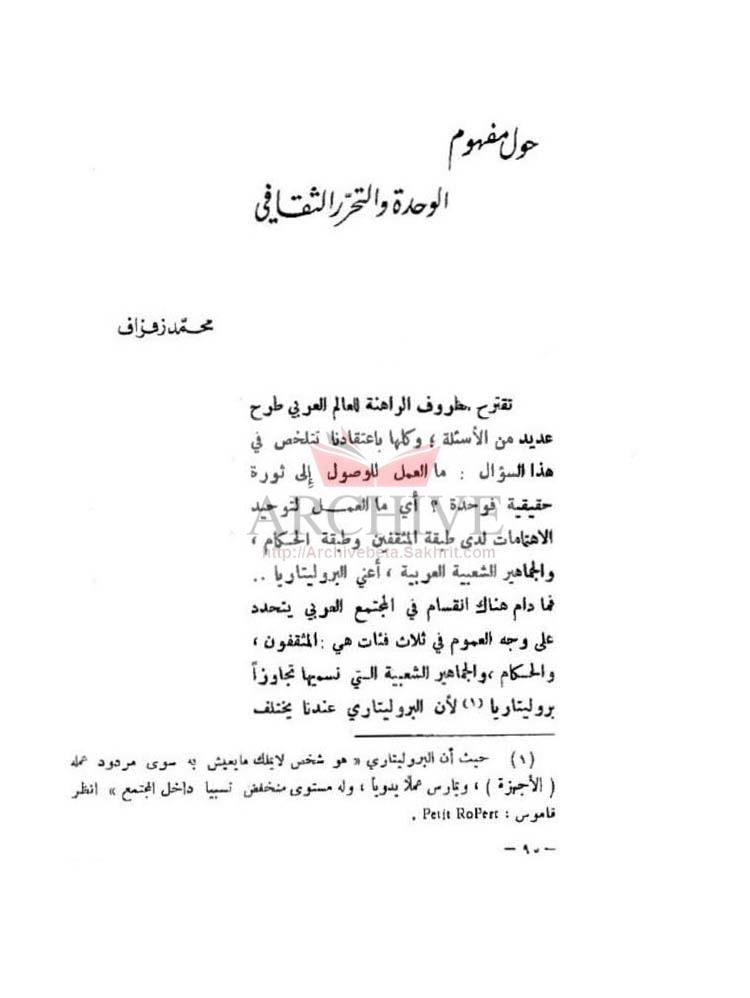 حول مفهوم
الوحدة والتحرّر الثقافي
محمّد زفزاف
تقترح .ظروف الراهنة للعالم العربي طرح
عديد من الأسئلة ؛ وكلها باعتقادنا تتلخص في
هذا السؤال : ما العمل للوصول إلى ثورة
حقيقية فوحدة ؟ أي ما العمــل لتوحيد
الاهتمامات لدى طبقة المثقفين وطبقة الحكام ،
والجماهير الشعبية العربية ، أعني البروليتاريا ..
فما دام هناك انقسام في المجتمع العربي يتحدد
على وجه العموم في ثلاث فئات هي : المثقفون ،
والحكام ، والجماهير الشعبية التي نسميها تجاوزاً
بروليتاريا (١) لأن البروليتاري عندنا يختلف
(١) حيث أن البروليتاري « هو شخص لايملك مايعيش به سوى مردود عمله
( الأجهزة ) ، ويمارس عملًا يدوياً ، وله مستوى منخفض نسبيا داخل المجتمع » انظر
قاموس : Petit RoPert .
ARCHIVE
http://Archivebeta.Sakhrit.com